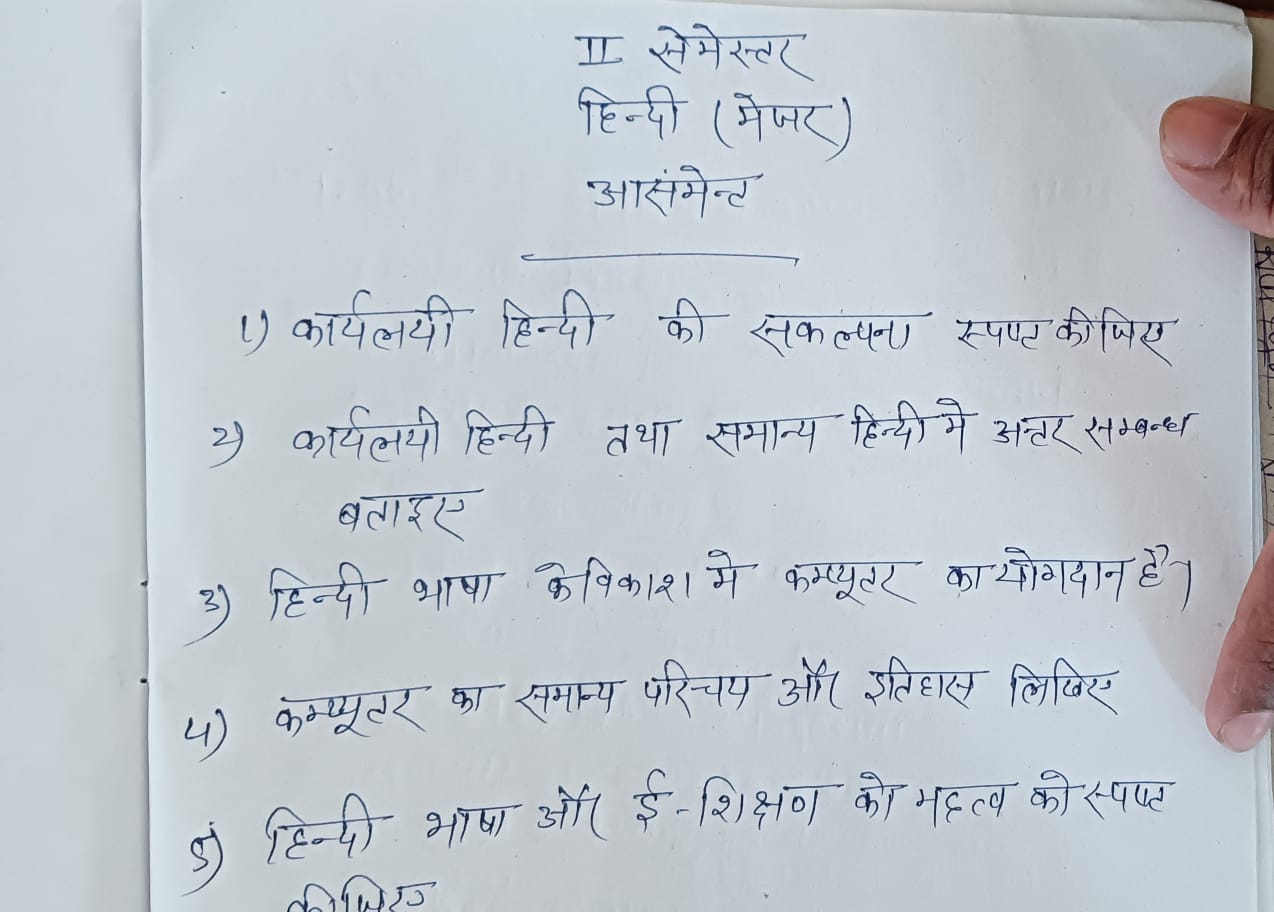 II सेमेस्टर
हिन्दी (मेजर)
आसंमेन्ट
1) कार्यलयी हिन्दी की सकल्पना स्पष्ट कीजिए
2) कार्यलयी हिन्दी तथा समान्य हिन्दी मे अन्तर सम्बन्ध
बताइए
3) हिन्दी भाषा के विकाश मे कम्प्यूटर का योगदान है।
4) कम्प्यूटर का समान्य परिचय और इतिहास लिखिए
5) हिन्दी भाषा और ई-शिक्षण को महत्व को स्पष्ट
कीजिए